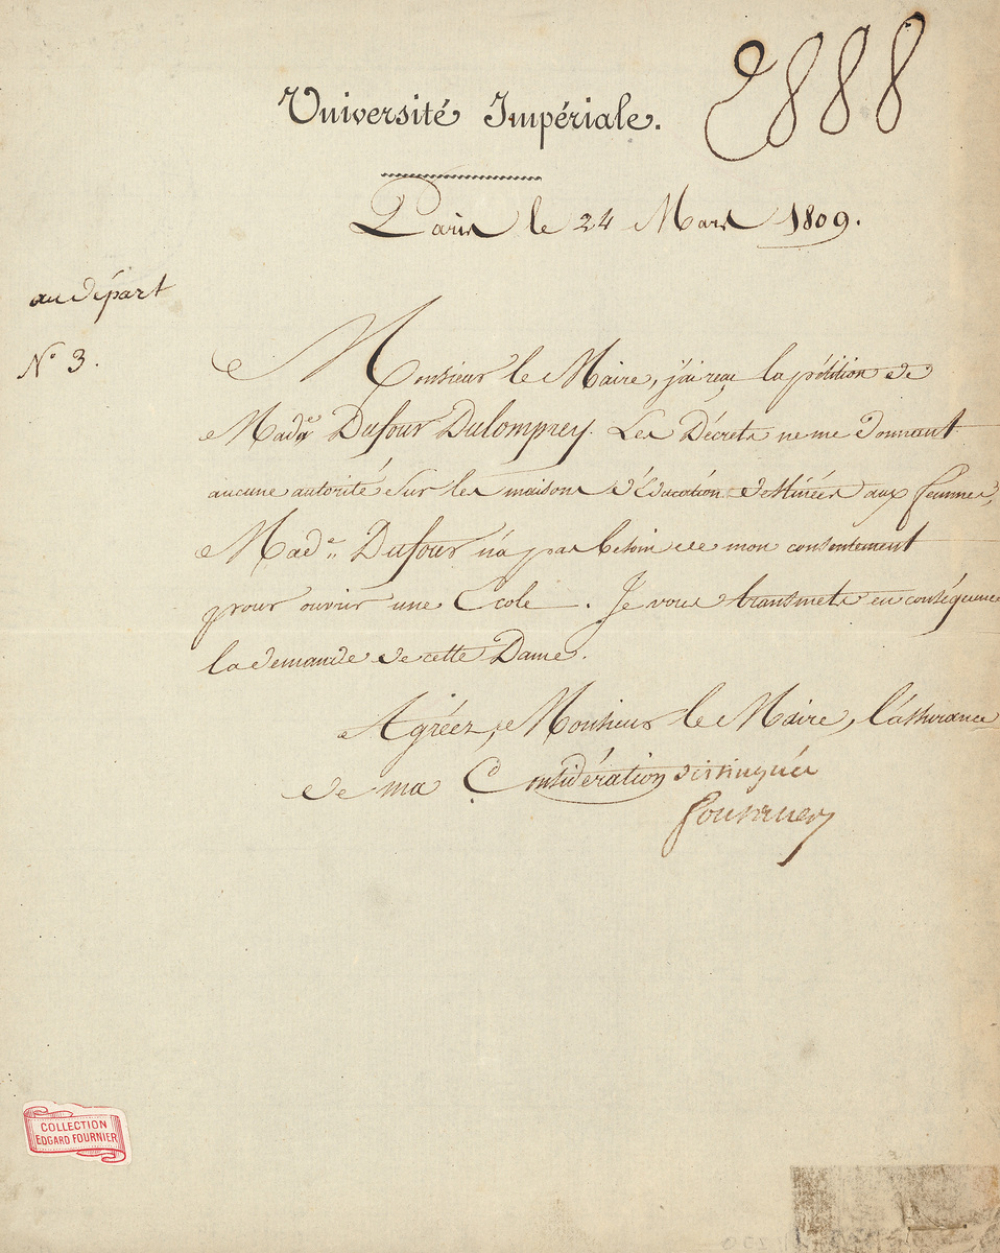 2888
Université Impériale.
Paris le 24 Mars 1809.
au départ
N° 3.
Monsieur le Maire, j'ai reçu la pétition de
Made Dufour Dulomprey. Les Décrets ne me donnant
aucune autorité sur les maisons d'Éducation destinées aux femmes,
Made. Dufour n'a pas besoin de mon consentement
pour ouvrir une École. Je vous transmets en conséquence
la demande de cette Dame.
Agréez, Monsieur le Maire, l'assurance
de ma Considération distinguée
COLLECTION
EDGARD FOURNIER